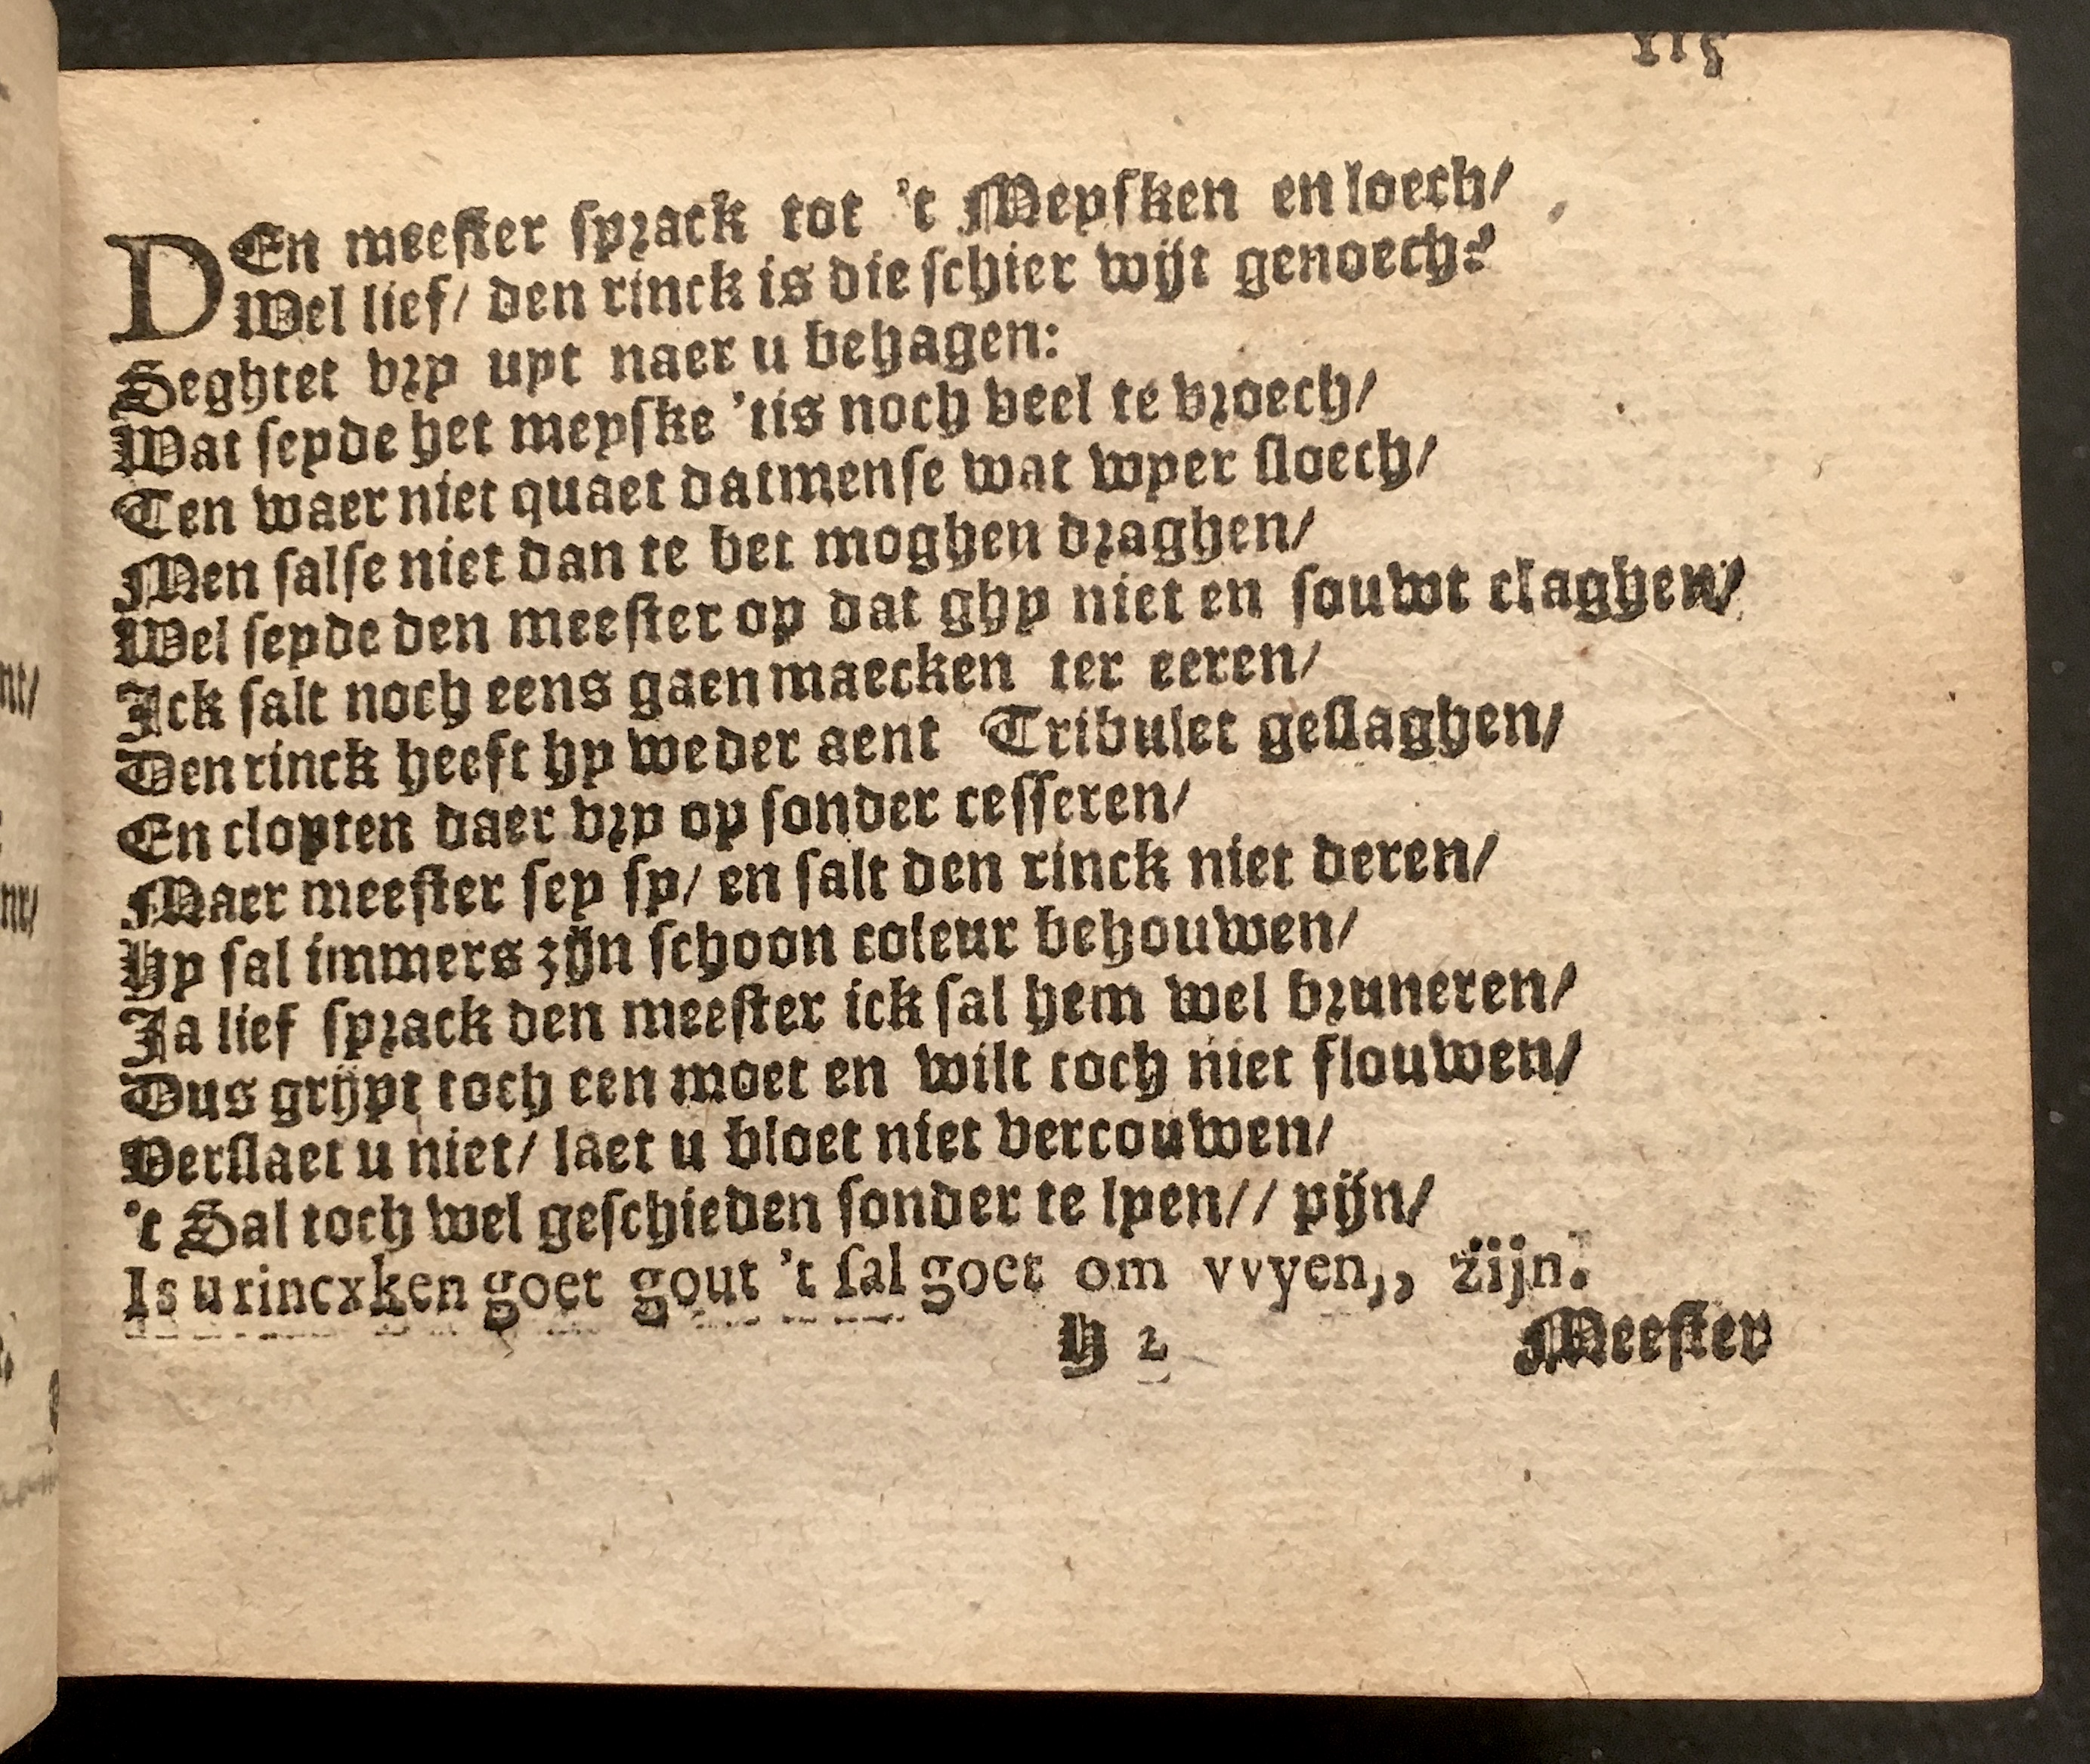 115
DEn meester sprack tot 't Meysken en loech/
Wel lief/ den rinck is die schier wijt genoech?
Seghtet vry uyt naer u behagen:
Wat seyde het meyske 'tis noch veel te vroech/
Ten waer niet quaet datmense wat wyer sloech/
Men salse niet dan te bet moghen draghen/
Wel seyde den meester op dat ghy niet en souwt claghen/
Ick salt noch eens gaen maecken ter eeren/
Den rinck heeft hy weder aent Tribulet geslaghen/
En clopten daer vry op sonder cesseren/
Maer meester sey sy/ en salt den rinck niet deren/
Hy sal immers zijn schoon coleur behouwen/
Ja lief sprack den meester ick sal hem wel bruneren/
Dus grijpt toch een moet en wilt toch niet flouwen/
Verslaet u niet/ laet u bloet niet vercouwen/
't Sal toch wel geschieden sonder te lyen// pijn/
Is u rincxken goet gout 't sal goet om vvyen,, zijn.
H 2
Meester
nt/
nt/